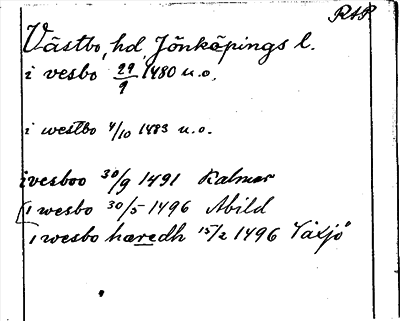 RAP
Västbo, hd, Jönköpings l.
i vesbo 29/9 1480 u.o.
i westbo 4/10 1483 u.o.
ivesboo 30/9 1491 Kalmar
[i wesbo 30/5 1496 Abild
i wesbo hæredh 15/2 1496 Växjö